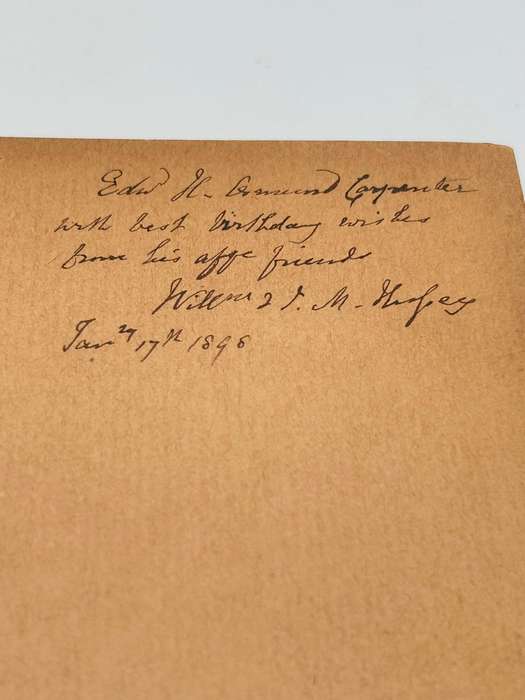 Edwd H. Ormund Carpenter
with best birthday wishes
from his affe friends
& J. M.
Jany 17th 1898